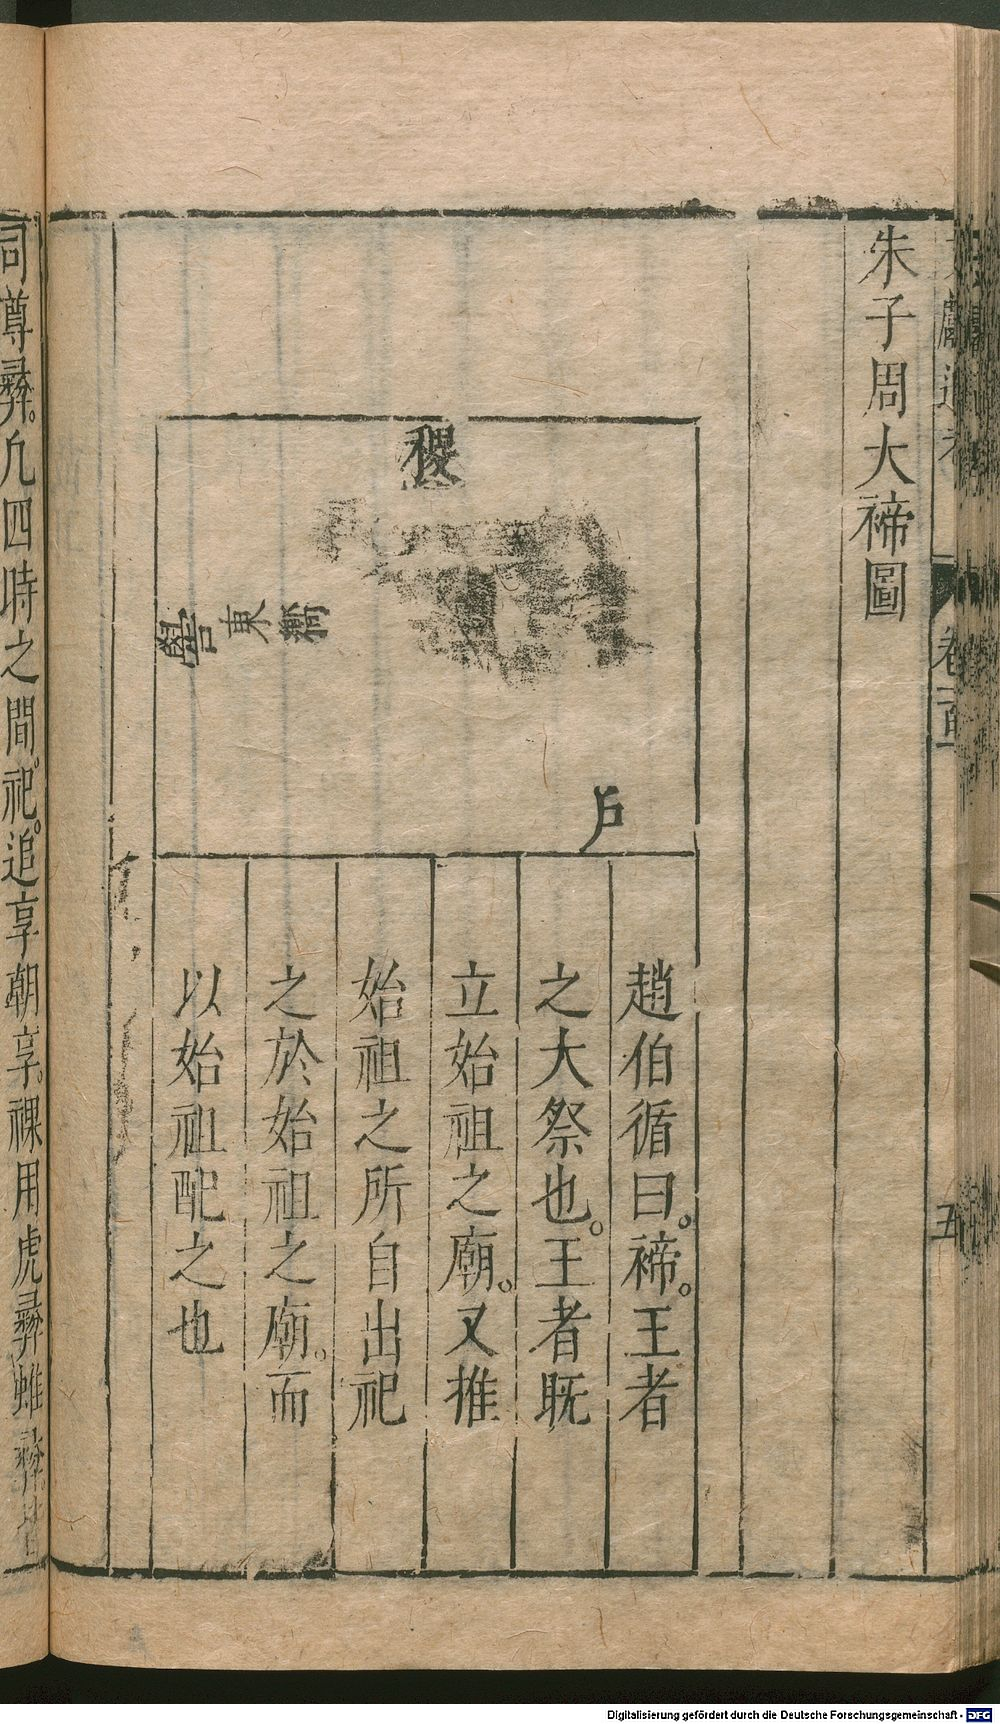 卷首
五
朱子周大禘圖
稷
嚳東嚮
戶
趙伯循曰。禘。王者
之大祭也。王者既
立始祖之廟。又推
始祖之所自出祀
之於始祖之廟。而
以始祖配之也
同尊彝。凡四時之間。祀。追享朝享。祼用虎彝蜼彝。
Digitalisierung gefördert durch die Deutsche Forschungsgemeinschaft - DFG